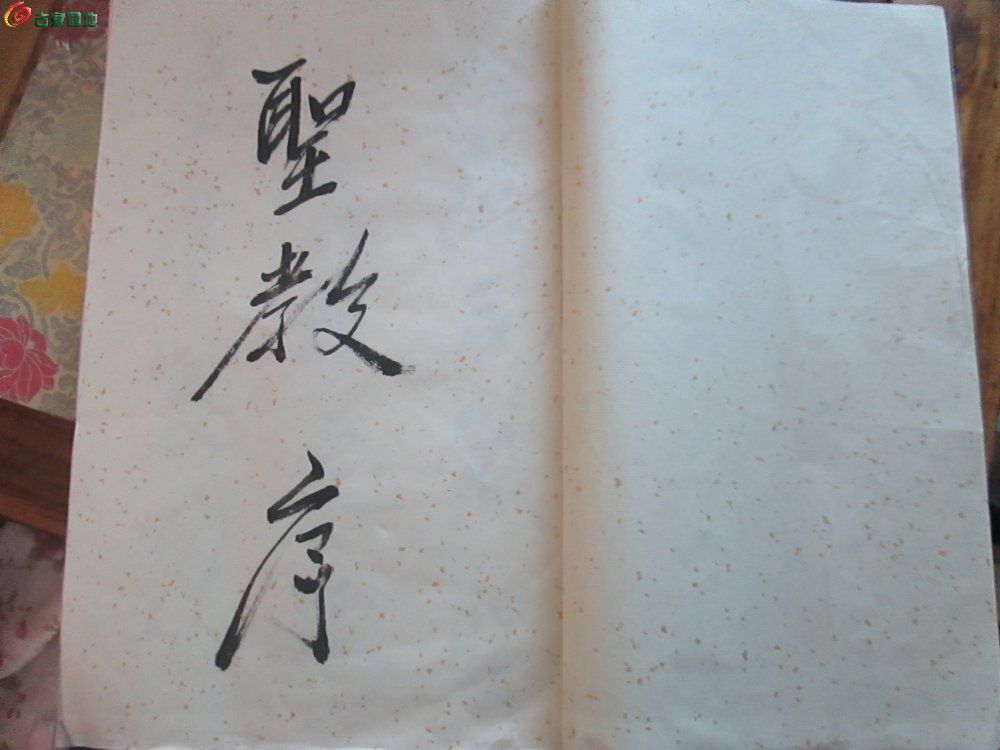 古泉园地
聖教序